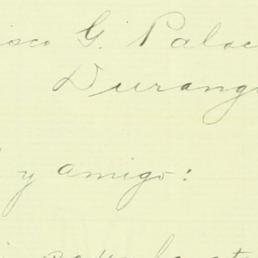 isco G. Palac
Durang
y amigo: